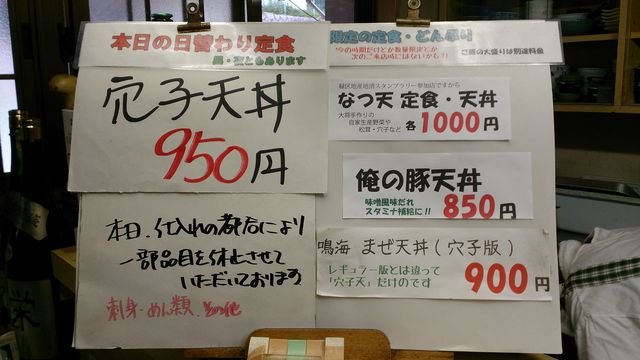 本日の日替わり定食
穴子天丼
950円
本日、仕入れの都合により
一部品目を休止させて
いただいております
刺身・めん類、その他
限定の定食・どんぶり
"今の時期だけとか数量限定とか
次のご来店時にはないかも?!
ご飯の大盛りは別途料金
緑区地産地消スタンプラリー参加店ですから
なつ天 定食・天丼
大将手作りの
自家生産野菜や
松茸・穴子など
各1000円
俺の豚天丼
味噌風味だれ
スタミナ補給に!!
850円
鳴海 まぜ天丼(穴子版)
レギュラー版とは違って
「穴子天」だけのです
900円